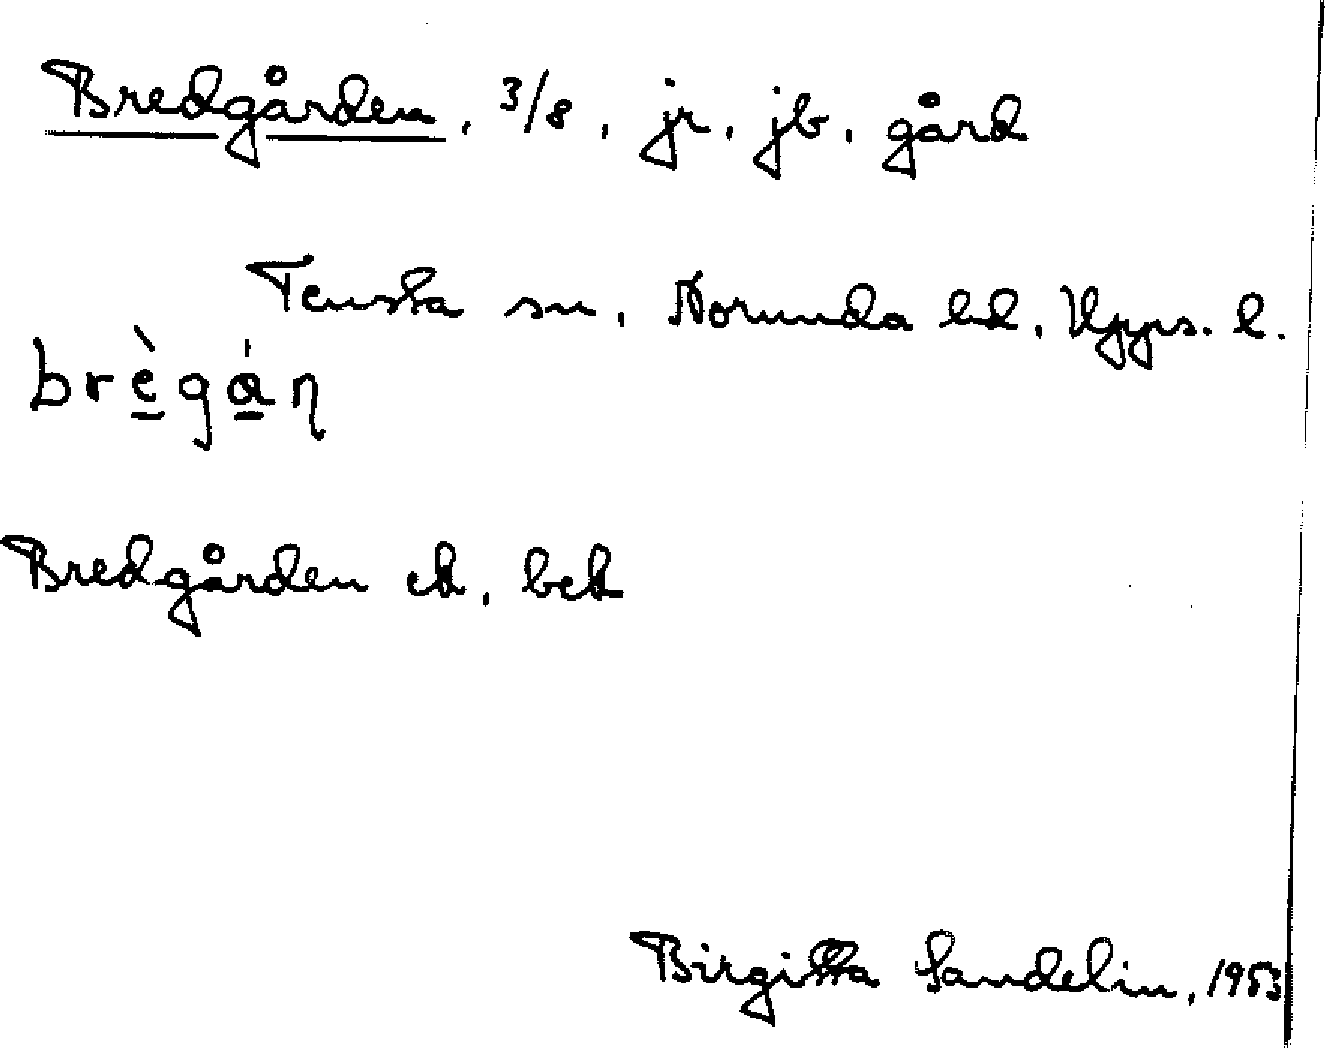 Bredgården, 3/8, jr, jb, gård
Tensta sn, Norunda hd, Upps. l.
brègáṇ
Bredgården ek, bek
Birgitta Sandelin, 1953